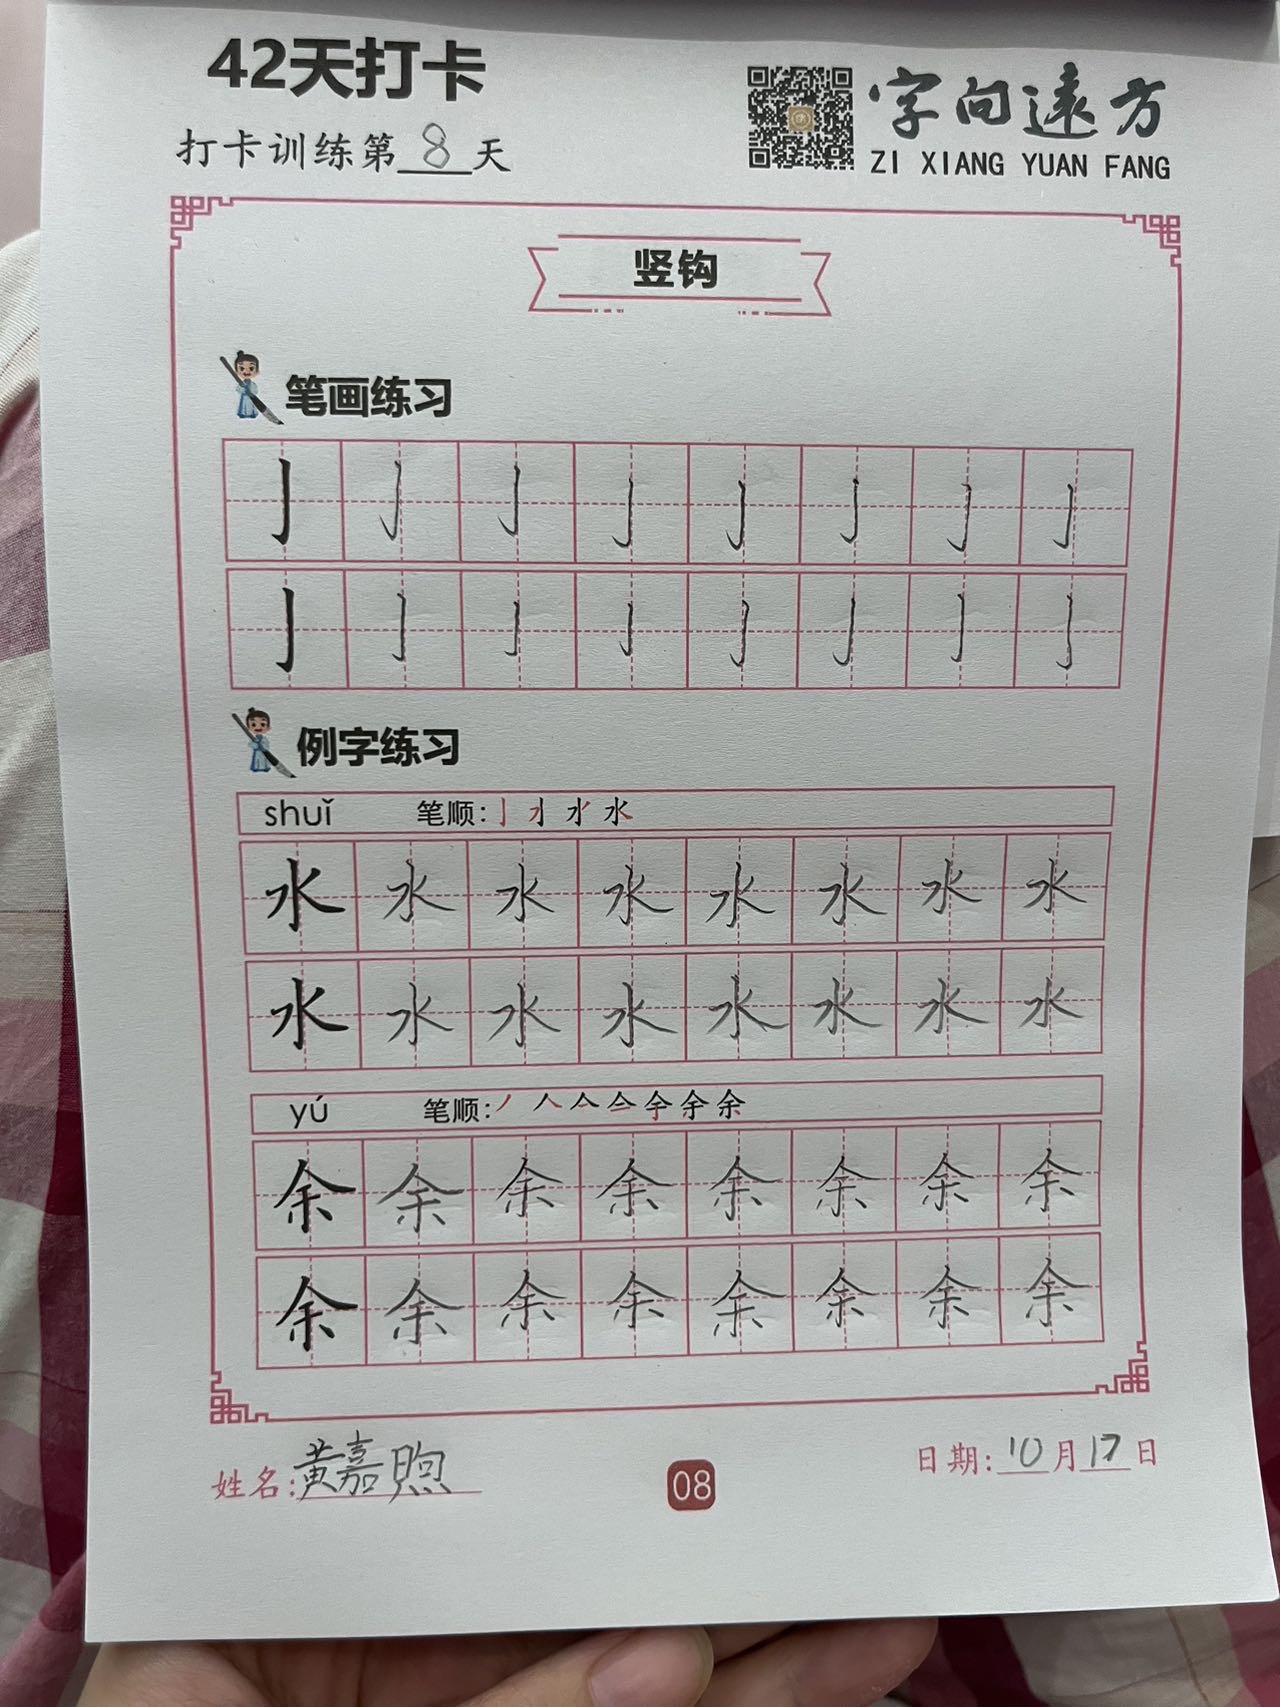 42天打卡
字向远方
打卡训练第8天
ZI XIANG YUAN FANG
竖钩
笔画练习
亅亅亅亅亅亅亅亅
亅亅亅亅亅亅亅亅
例字练习
shuǐ 笔顺:
水水水水水水水水
水水水水水水水水
yú 笔顺:
余余余余余余余余
余余余余余余余余
姓名:黄嘉煦
08
日期:10月17日